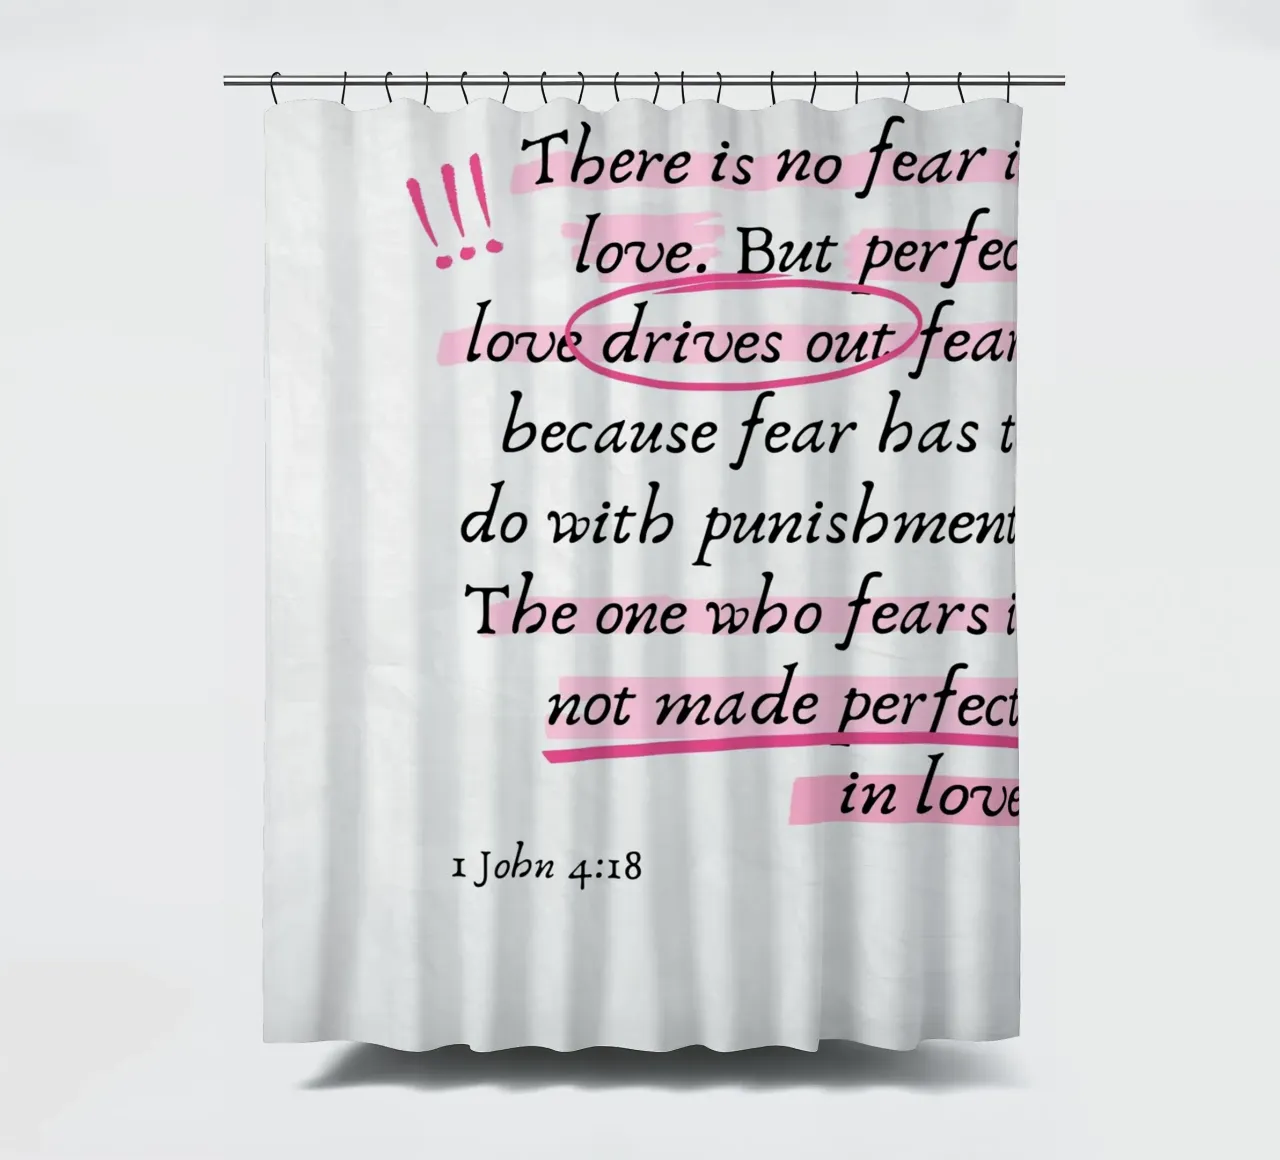 !!!
There is no fear i
love. But perfec
love drives out fear
because fear has t
do with punishment
The one who fears i
not made perfect
in love
1 John 4:18